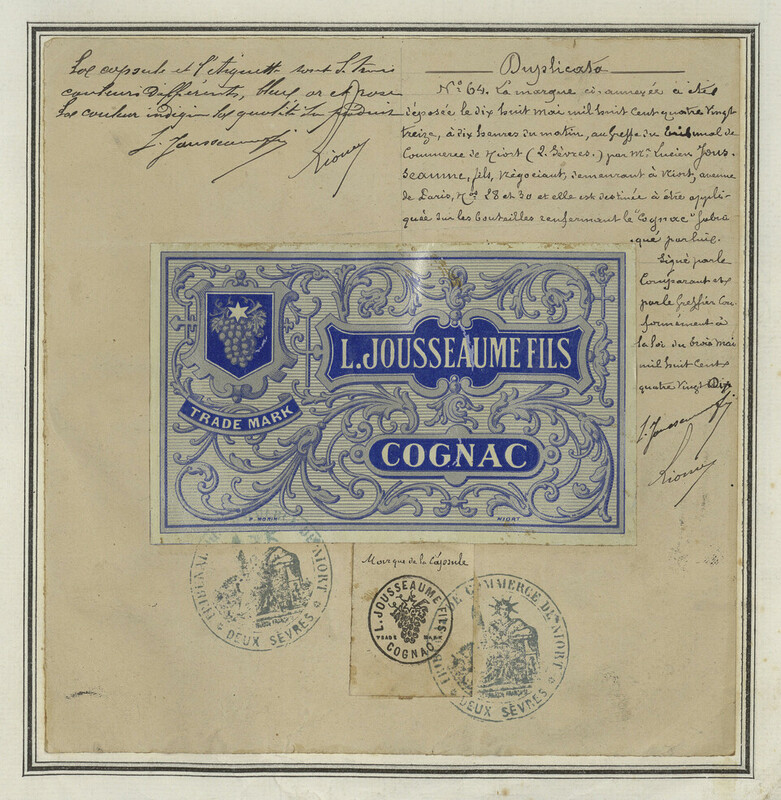 La capsule et l'étiquette sont de trois
couleurs différentes, bleu or et rose
La couleur indique les qualités du produit
L. Jousseaume fils
Duplicata
N° 64. La marque ci-annexée a été
déposée le dix huit mai mil huit cent quatre vingt
treize, à dix heures du matin, au Greffe du tribunal de
Commerce de Niort (2. Sèvres.) par Mr Lucien Jous-
seaume, fils, Négociant, demeurant à Niort, avenue
de Paris, Nos 28 et 30 et elle est destinée à être appli-
quée sur les bouteilles renfermant le "Cognac" fabri
qué par lui.
Signé par le
Comparant et
par le Greffier con-
formément à
la loi du trois mai
mil huit cent
quatre vingt Dix
L. Jousseaume fils
L. JOUSSEAUME FILS
TRADE MARK
COGNAC
P. MORIN
NIORT
Marque de la Capsule
L. JOUSSEAUME FILS
TRADE MARK
COGNAC
TRIBUNAL DE COMMERCE DE NIORT
DEUX SÈVRES
TRIBUNAL DE COMMERCE DE NIORT
DEUX SÈVRES